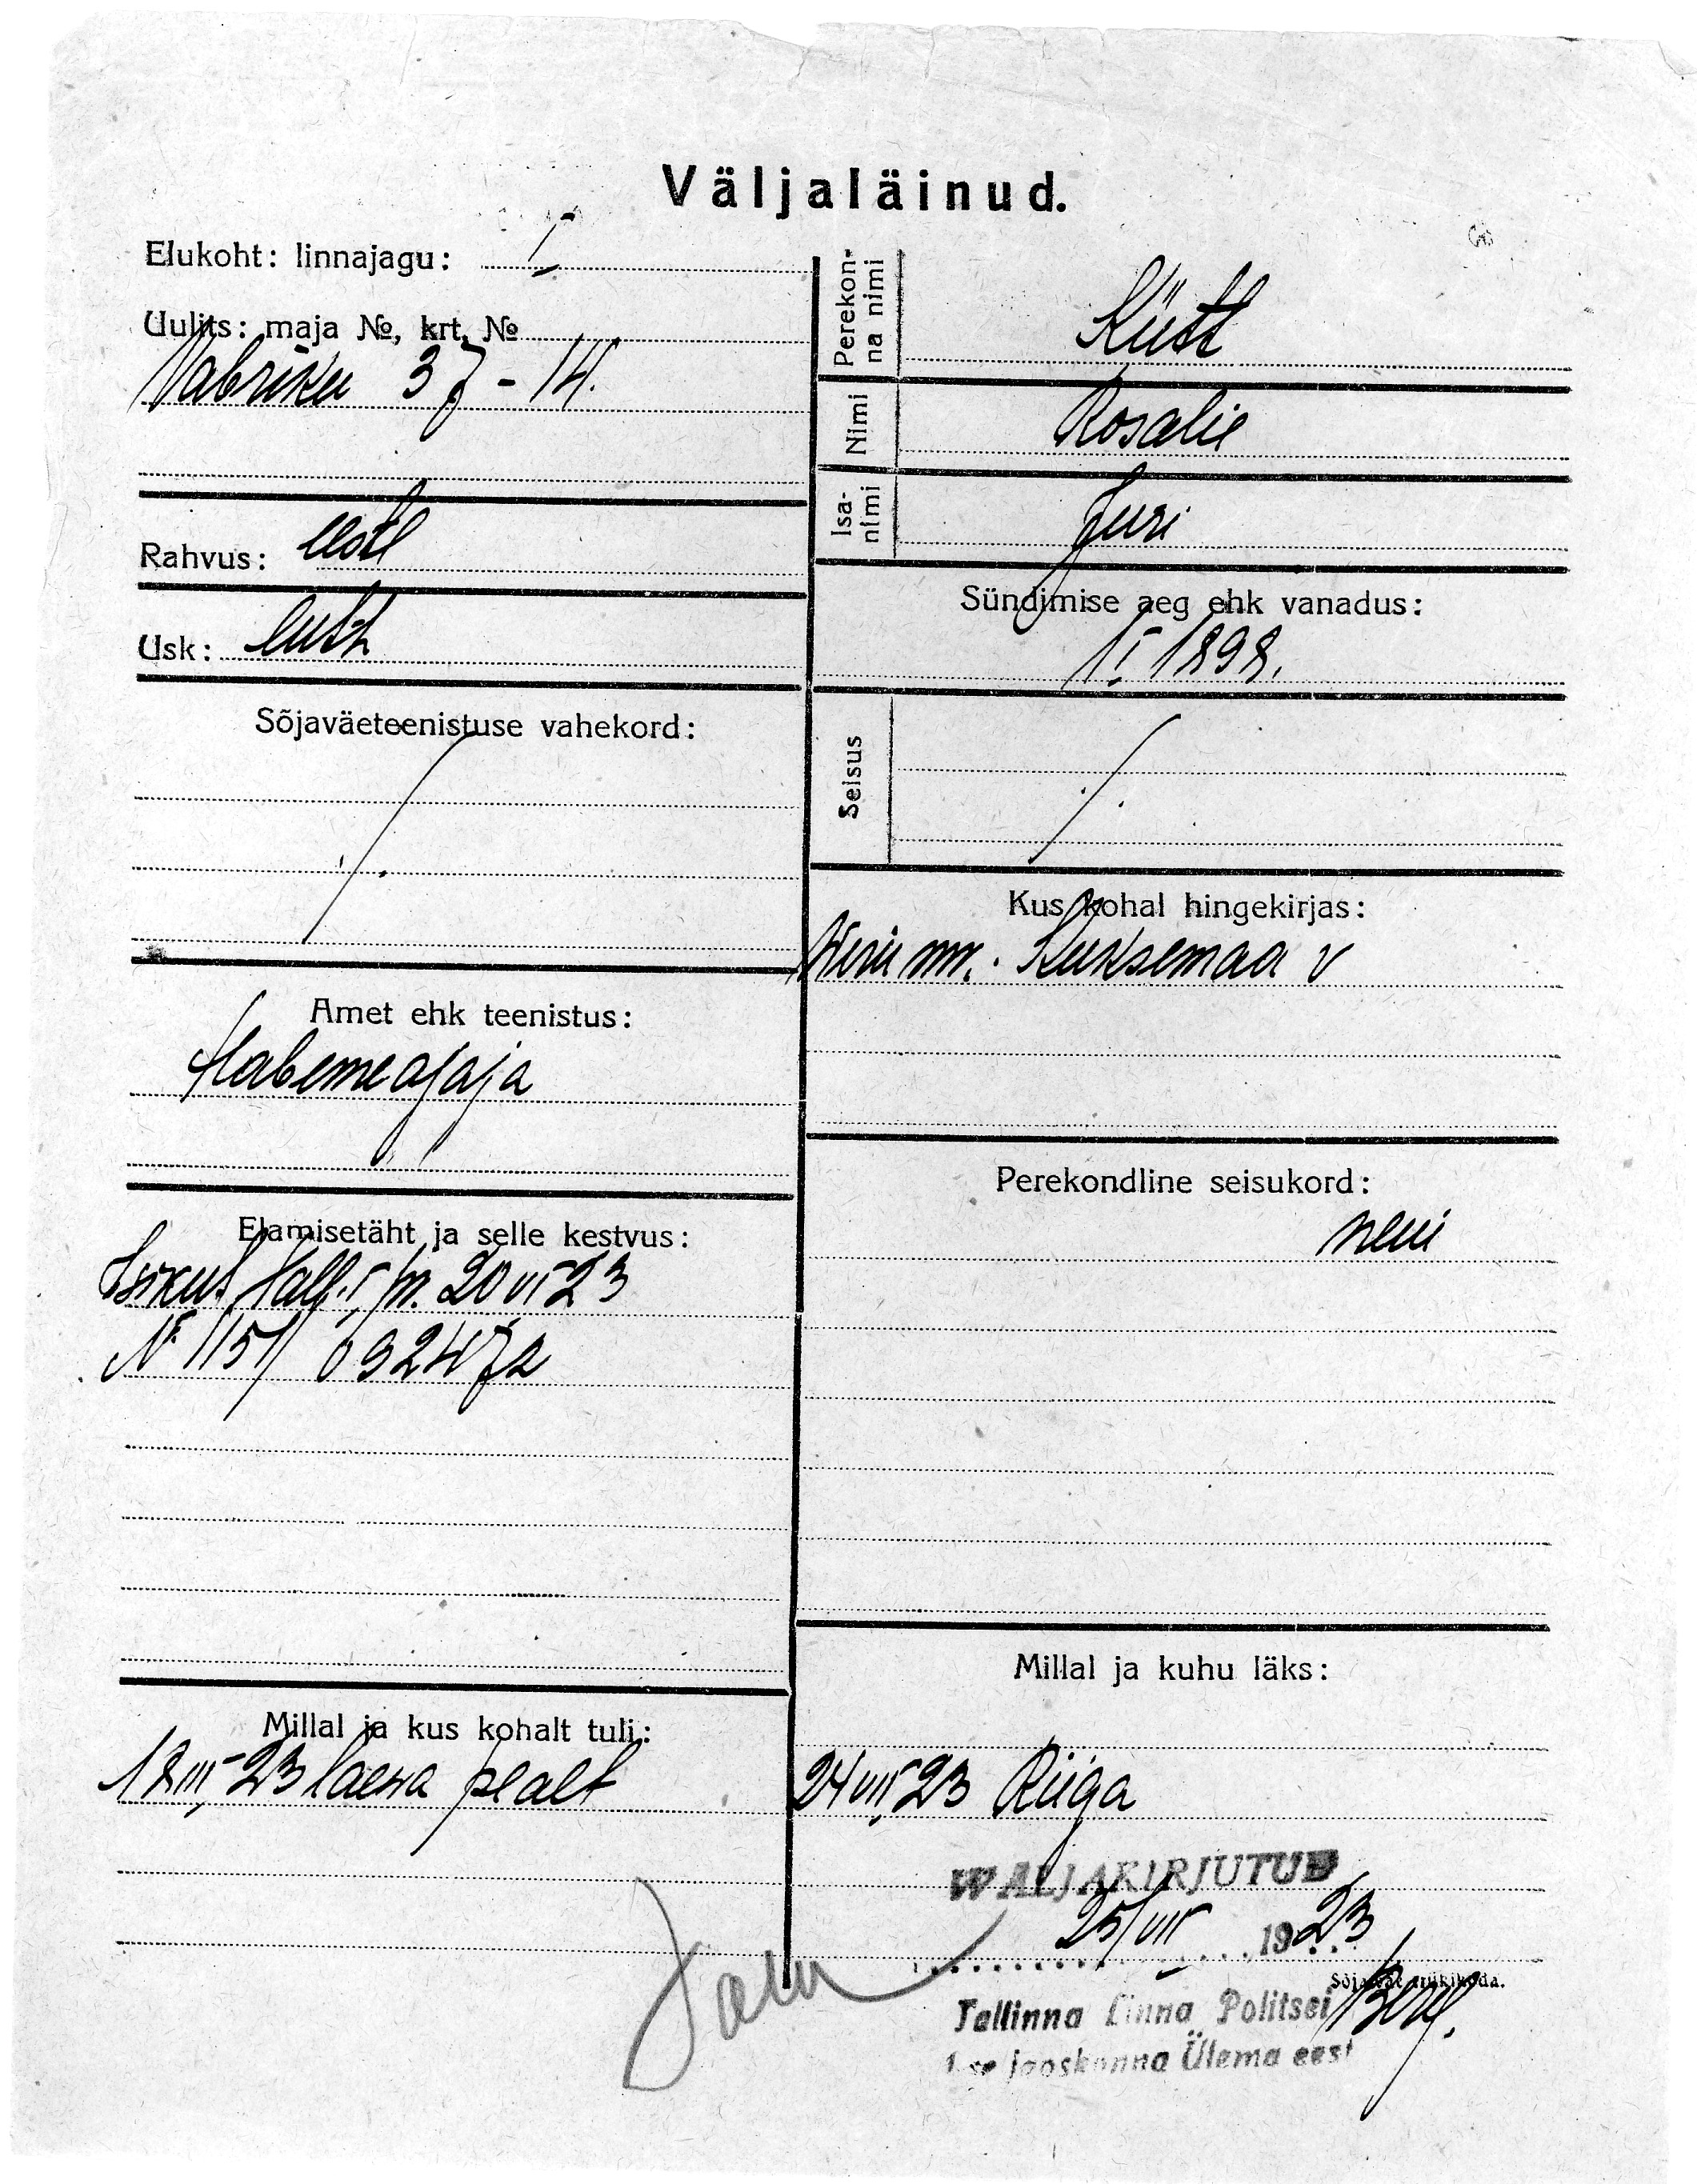 Väljaläinud.
Elukoht: linnajagu: I
Uulits: maja №, krt. №
Vabriku 37 - 14.
Rahvus: eestl
Usk: luth
Sõjaväeteenistuse vahekord:
Amet ehk teenistus:
Habemeajaja
Elamisetäht ja selle kestvus:
Isikut Tall. I jsk. 20 VI 23
№ 1151
Millal ja kus kohalt tuli:
12 III 23 laeva pealt
Perekonna nimi Kütt
Nimi Rosalie
Isanimi Juri
Sündimise aeg ehk vanadus:
1 I 1898.
Seisus
Kus kohal hingekirjas:
Wiru mk. Kuksemaa v
Perekondline seisukord:
neiu
Millal ja kuhu läks:
24 VII 23 Riiga
WALJAKIRJUTUD
25/VII 1923
Sõjaväe trükikoda.
Tallinna Linna Politsei
1-se jaoskonna Ülema eest